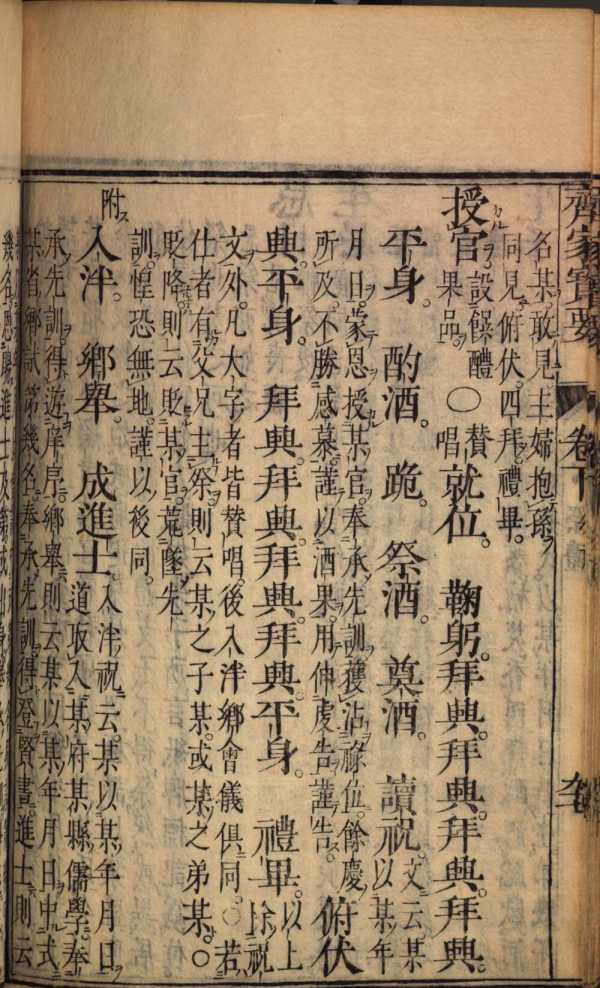 齊家寶要
卷下
名某敢見主婦抱孫
同見俯伏四拜禮畢。
授官設饌醴果品〇贊唱就位。鞠躬。拜興。拜興。拜興。拜興。
平身。酌酒。跪。祭酒。奠酒。讀祝文云某以某年
月日。蒙恩授某官。奉承先訓。獲沾祿位。餘慶
所及。不勝感慕。謹以酒果。用伸虔告。謹告。俯伏
興。平身。拜興。拜興。拜興。拜興。平身。禮畢。以上除祝
文外。凡大字者皆贊唱。後入泮鄉會儀俱同。〇若
仕者有父兄主祭。則云某之子某。或某之弟某。〇
貶降則云貶某官。荒墜先
訓。惶恐無地。謹以後同。
附入泮。鄉舉。成進士。入泮祝云。某以某年月日
道取入某府某縣儒學。奉
承先訓。得遊庠序。鄉舉則云某以某年月日中式
某省鄉試第幾名。奉承先訓。得登賢書。進士則云